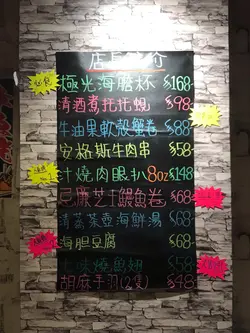 店長推介
極光海膽杯 $168
清酒煮扥扥蜆 $98
牛油果軟殼蟹卷 $88
安格斯牛肉串 $58
汁燒肉眼扒8oz $148
忌廉芝士鰻魚卷 $68
清荔茶壺海鮮湯 $68
海膽豆腐 $68
燒魚翅 $58
胡麻手羽(2隻) $48